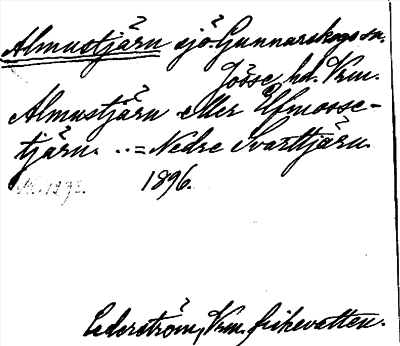 Almustjärn sjö Gunnarskogs sn.
Jösse hd. Vrm.
Almustjärn eller Elfmosse-
tjärn. ..= Nedre Svarttjärn.
1896.
Cederström, Vrm. fiskevatten.